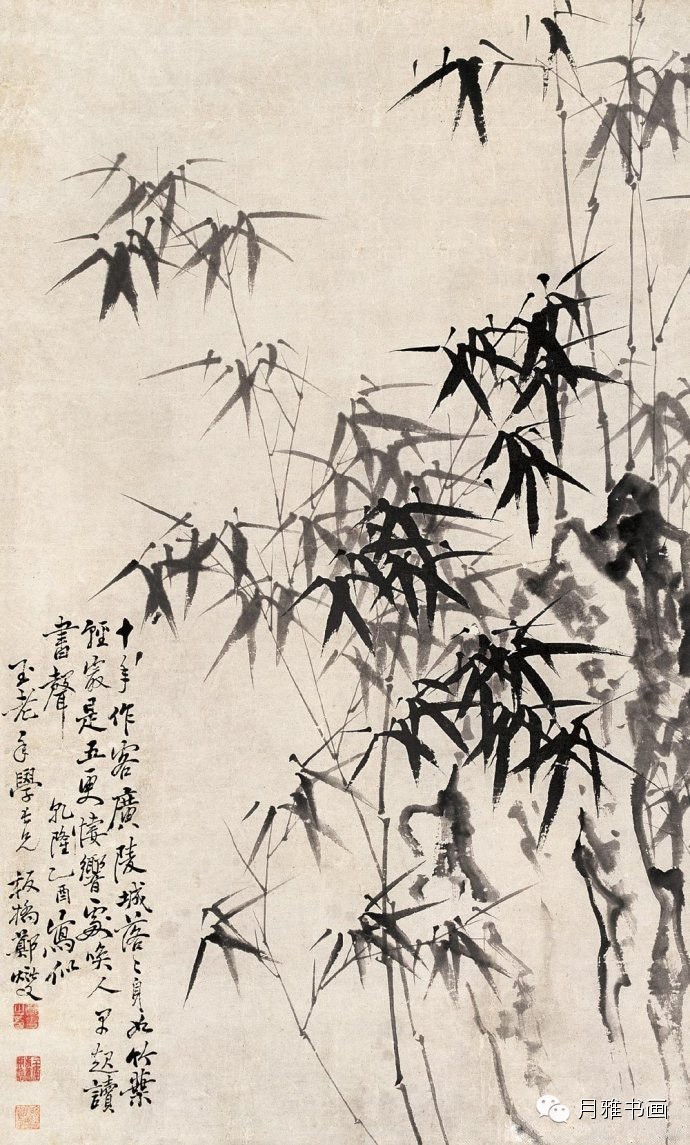 十年作客廣陵城落〻身如竹葉
輕最是五更悽響處喚人早起讀
書聲
乾隆乙酉寫似
玉老年學長兄 板橋鄭燮
月雅书画